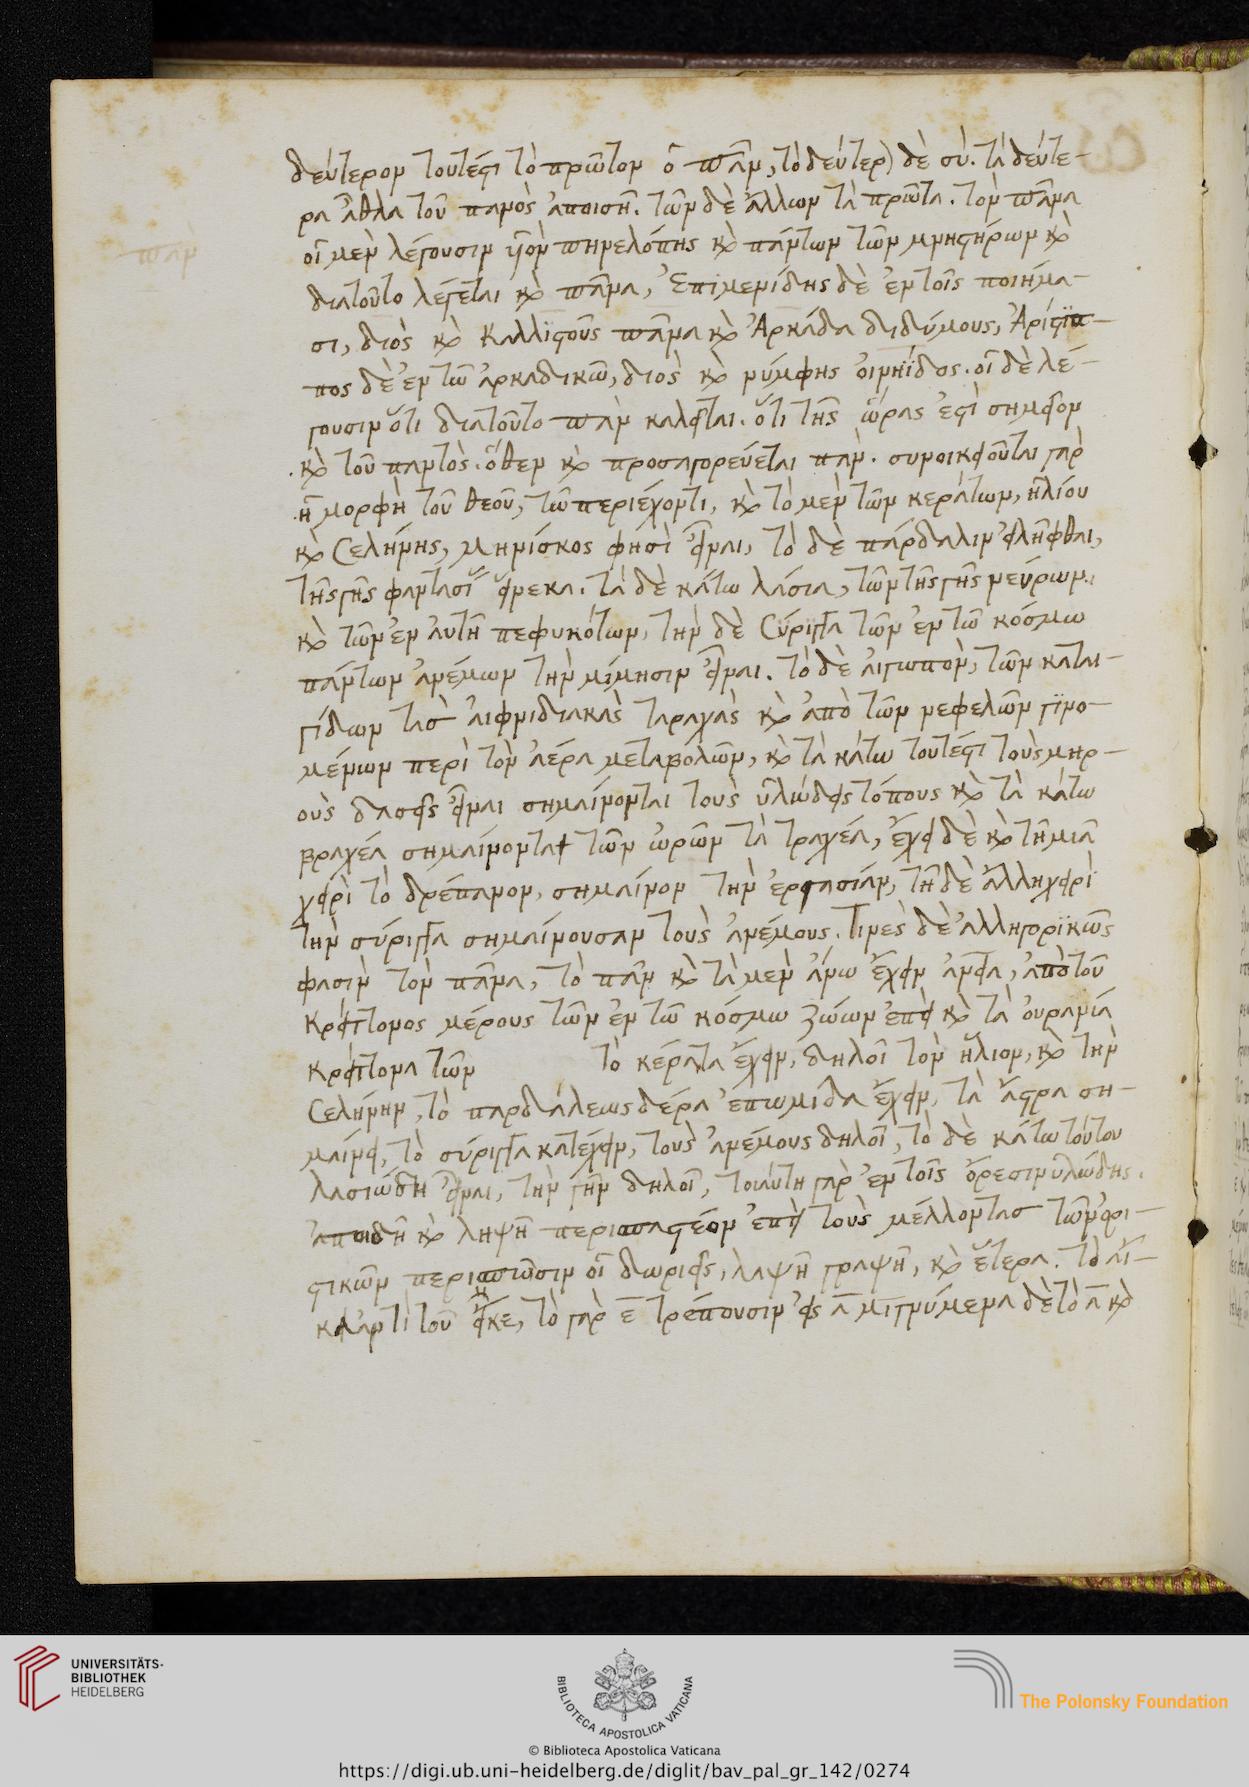 δεύτερον τουτέστι τὸ πρῶτον ὁ πᾶν, τὸ δεύτερ) δὲ σὺ. τὰ δεύτε-
ρα ἆθλα τοῦ πανὸς ἀποίση. τῶν δὲ ἄλλων τὰ πρῶτα. τὸν πᾶνα
οἱ μὲν λέγουσιν υἱὸν πηνελόπης κὶ πάντων τῶν μνηστήρων κὶ
διατοῦτο λέγεται κὶ πᾶνα, Ἐπιμενίδης δὲ ἐν τοῖς ποιήμα-
σι, διὸς κὶ Καλλιστοῦς πᾶνα κὶ Ἀρκάδα διδύμους, Ἀρίστιπ-
πος δὲ ἐν τῶ ἀρκαδικῶ, διὸς κὶ νύμφης οἰνηΐδος. οἱ δὲ λέ-
γουσιν ὅτι διατοῦτο πὰν καλεῖται. ὅτι τῆς ὥρας ἐστὶ σημεῖον
κὶ τοῦ παντὸς. ὅθεν κὶ προσαγορεύεται πάν. συνοικειοῦται γὰρ
ἡ μορφὴ τοῦ θεοῦ, τῶ περιέχοντι, κὶ τὸ μὲν τῶν κεράτων, ἡλίου
κὶ Σελήνης, μηνίσκος φησὶ εἶναι, τὸ δὲ πάρδαλιν εἰλῆφθαι,
τῆς γῆς φαντασί εἵνεκα. τὰ δὲ κάτω λάσια, τῶν τῆς γῆς νεύρων.
κὶ τῶν ἐν αὐτῆ πεφυκότων, τὴν δὲ Σύριγγα τῶν ἐν τῶ κόσμω
πάντων ἀνέμων τὴν μίμησιν εἶναι. τὸ δὲ αἰγωπὸν, τῶν καται-
γίδων τὰσ αἰφνιδιακὰς ταραχὰς κὶ ἀπὸ τῶν νεφελῶν γινο-
μένων περὶ τὸν ἀέρα μεταβολῶν, κὶ τὰ κάτω τουτέστι τοὺς μηρ-
οὺς δασεῖς εἶναι σημαίνονται τοὺς ὑλώδεις τόπους κὶ τὰ κάτω
βραχέα σημαίνονται τῶν ὠρῶν τὰ τραχέα, ἔχει δὲ κὶ τῆ μιᾶ
χειρὶ τὸ δρέπανον, σημαίνον τὴν ἐργασίαν, τῆ δὲ ἄλλη χειρὶ
τὴν σύριγγα σημαίνουσαν τοὺς ἀνέμους. Τινὲς δὲ ἀλληγορικῶς
φασὶν τὸν πᾶνα, τὸ πᾶν κὶ τὰ μὲν ἄνω ἔχειν ἀνεῖα, ἀπὸ τοῦ
κρείττονος μέρους τῶν ἐν τῶ κόσμω ζώων ἐπεὶ κὶ τὰ οὐρανία
κρείττονα τῶν τὸ κέρατα ἔχειν, δηλοῖ τὸν ἥλιον, κὶ τὴν
Σελήνην, τὸ παρδάλεως δέρα ἐπωμίδα ἔχειν, τὰ ἄστρα ση-
μαίνει, τὸ σύριγγα κατέχειν, τοὺς ἀνέμους δηλοῖ, τὸ δὲ κάτω τούτου
λασιώδη εἶναι, τὴν γῆν δηλοῖ, τοιαύτη γὰρ ἐν τοῖς ὄρεσιν ὑλώδης.
κὶ ληψῆ περισπαστέον ἐπεὶ τοὺς μέλλοντασ τῶν ὁρι-
στικῶν περισπῶσιν οἱ δωριεῖς, λαψῆ γραψῆ, κὶ ἕτερα. τὸ αἴ-
κα ἀντὶ τοῦ εἶκε, τὸ γὰρ ε τρέπουσιν εἰς α μιγνύμενα δὲ τὸ α κὶ
πὰν
UNIVERSITÄTS-
BIBLIOTHEK
HEIDELBERG
BIBLIOTECA APOSTOLICA VATICANA
The Polonsky Foundation
© Biblioteca Apostolica Vaticana
https://digi.ub.uni-heidelberg.de/diglit/bav_pal_gr_142/0274